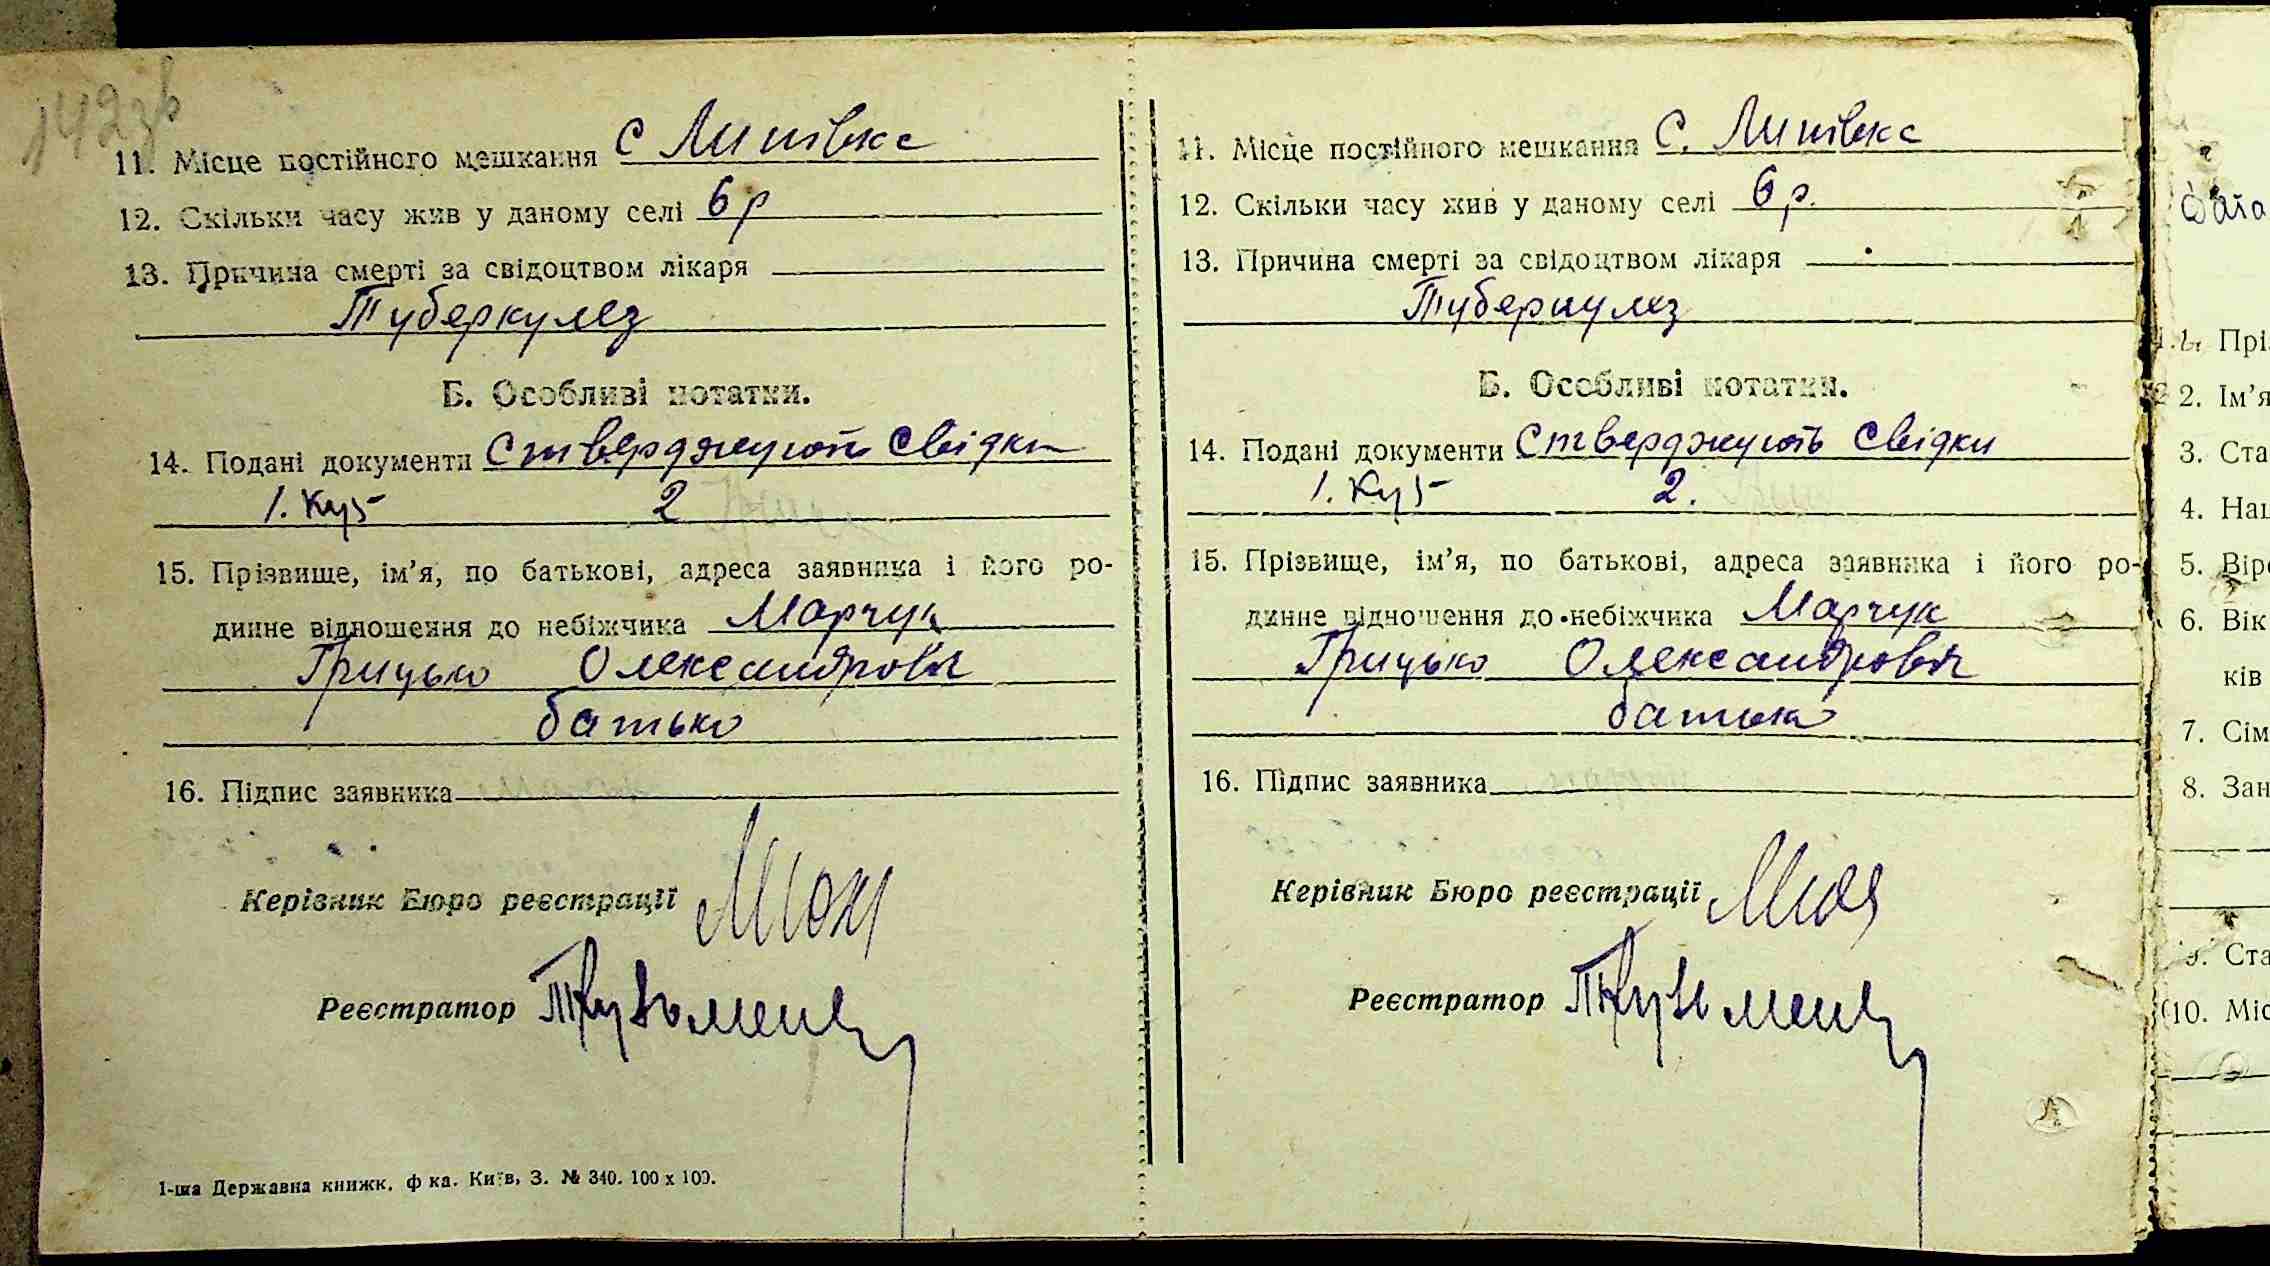 142зв
11. Місце постійного мешкання с Липівка
12. Скільки часу жив у даному селі 6 р
13. Причина смерті за свідоцтвом лікаря
Туберкулез
Б. Особливі нотатки.
14. Подані документи Стверджують свідки
1. Куз 2
15. Прізвище, ім'я, по батькові, адреса заявника і його ро-
динне відношення до небіжчика Марчук
Грицько Олександрович
батько
16. Підпис заявника
Керівник Бюро реєстрації
Реєстратор
1-ша Державна книжк. ф-ка. Київ, З. № 340. 100 x 100.
11. Місце постійного мешкання с. Липівка
12. Скільки часу жив у даному селі 6 р.
13. Причина смерті за свідоцтвом лікаря
Туберкулез
Б. Особливі нотатки.
14. Подані документи Стверджують свідки
1. Куз 2.
15. Прізвище, ім'я, по батькові, адреса заявника і його ро-
динне відношення до небіжчика Марчук
Грицько Олександрович
батько
16. Підпис заявника
Керівник Бюро реєстрації
Реєстратор
Дата
1. Прі
2. Ім'я
3. Ста
4. Нац
5. Віро
6. Вік
ків
7. Сім
8. Зан
9. Ста
10. Міс